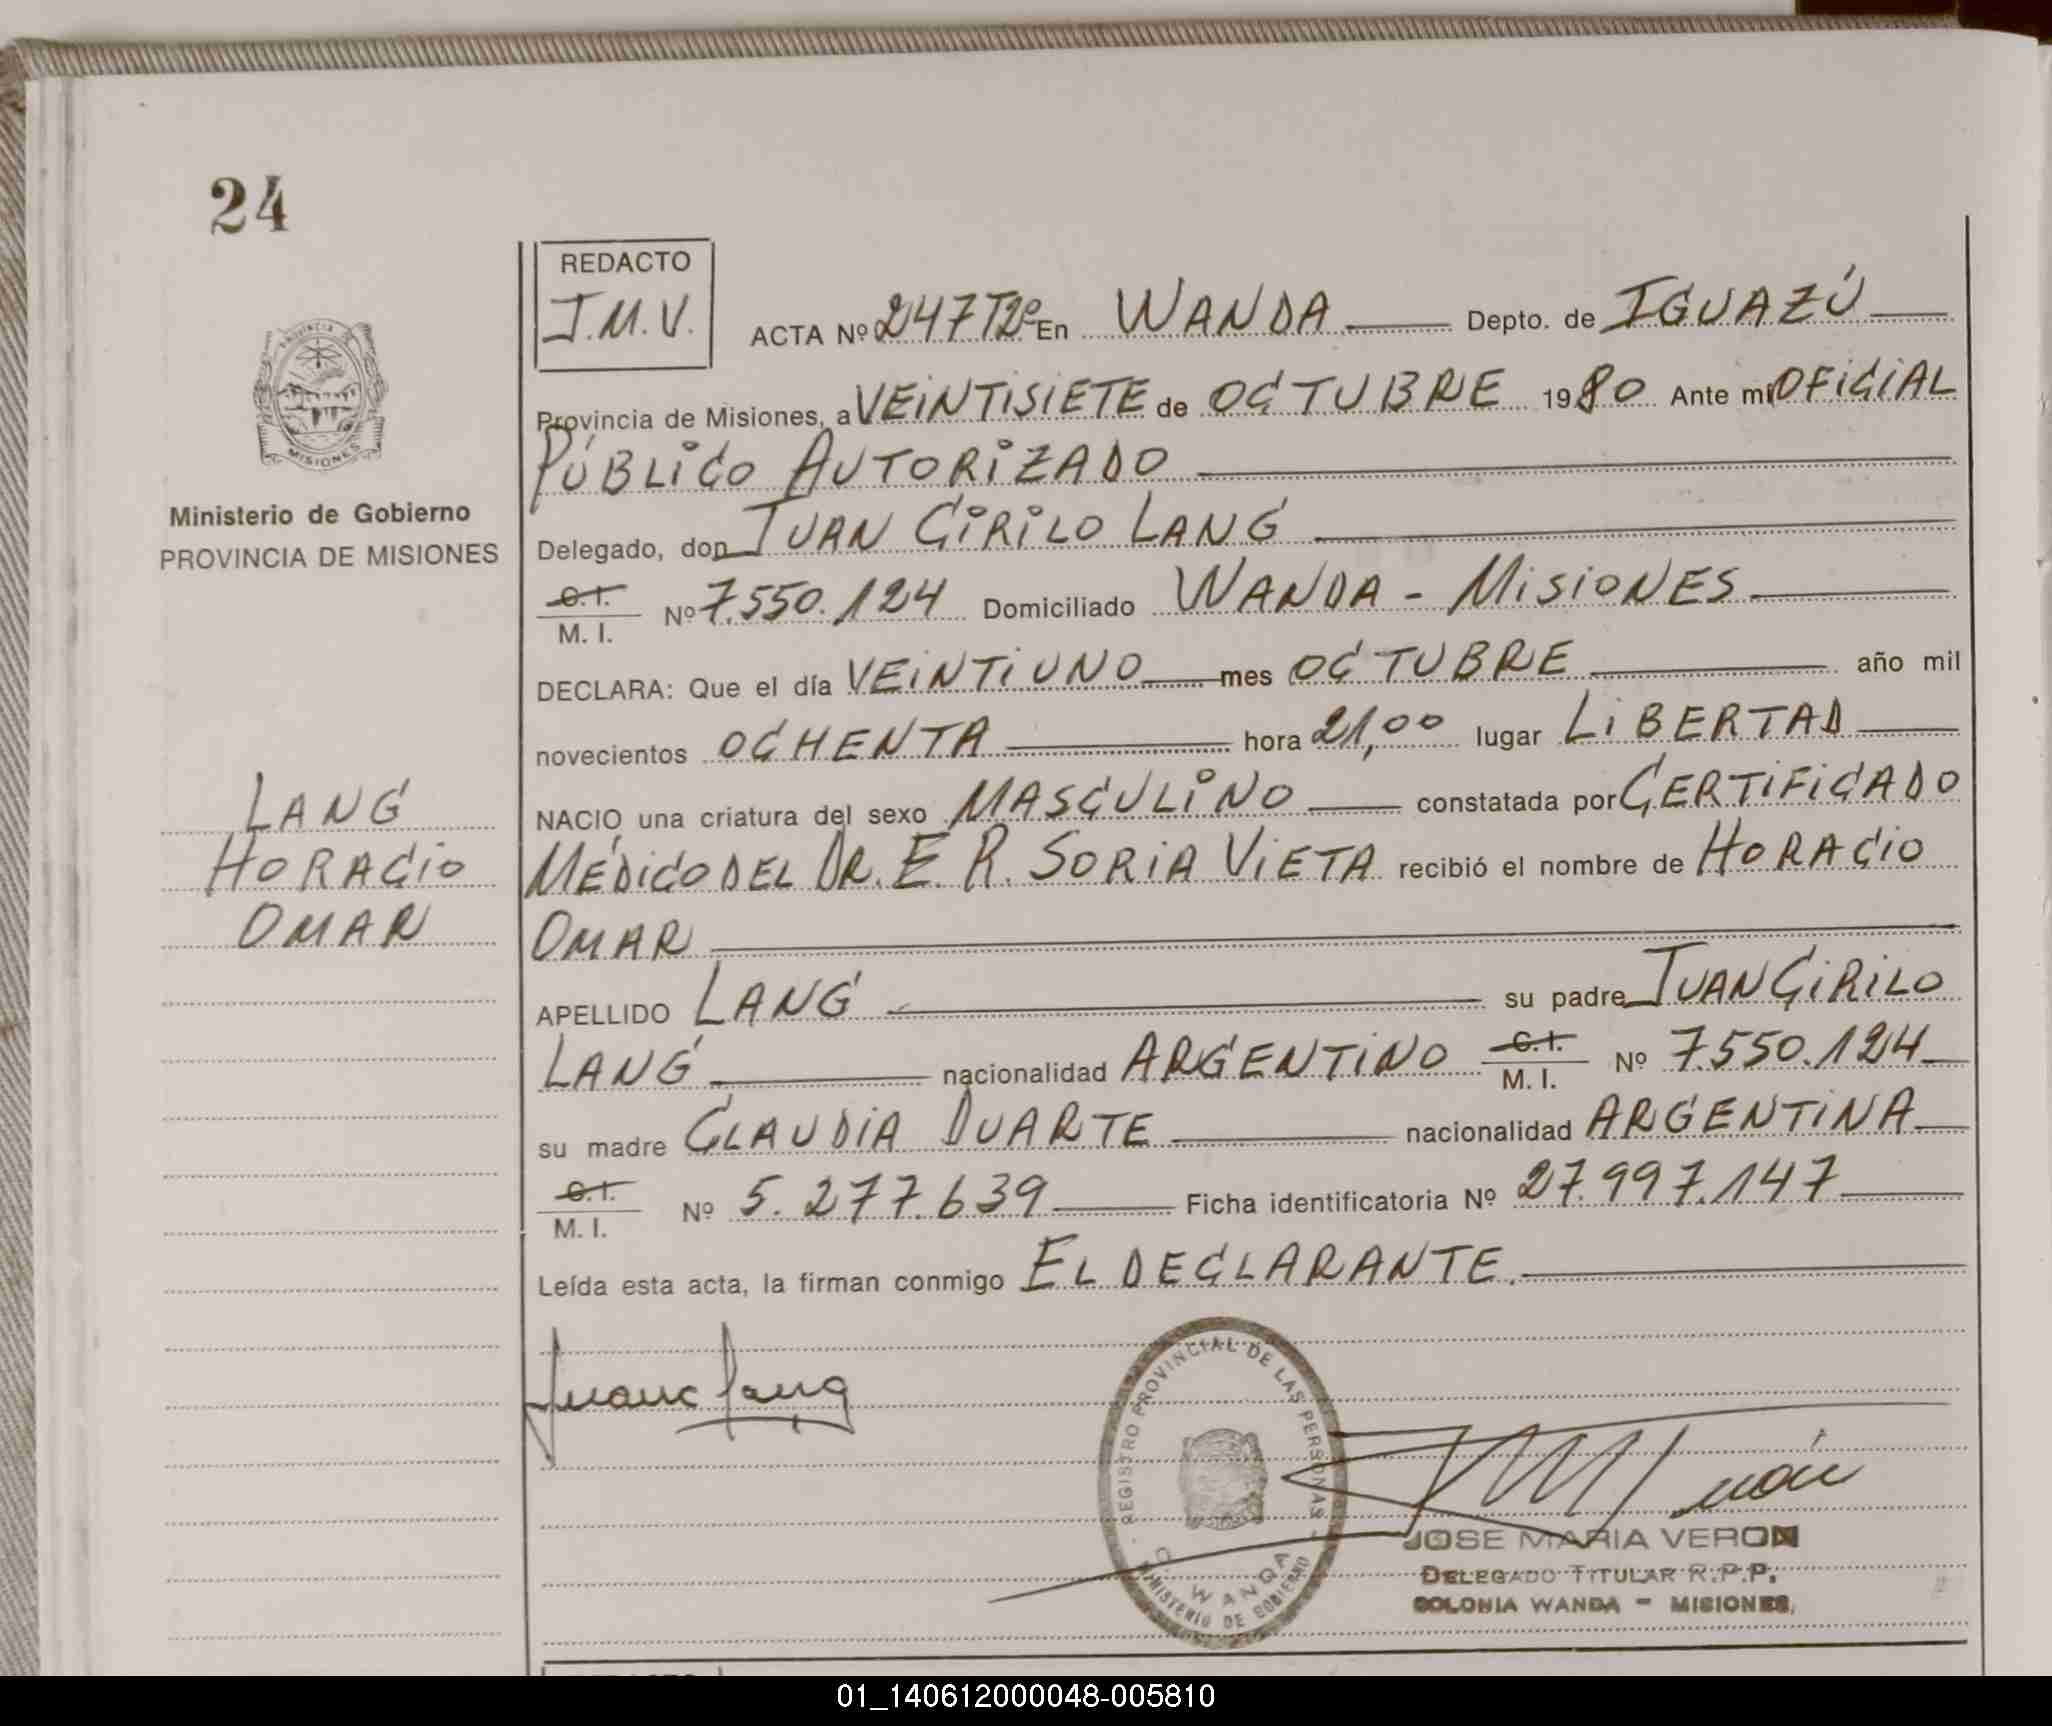 24
REDACTO
J.M.V.
ACTA Nº 247 Tº2º En WANDA Depto. de IGUAZÚ
Provincia de Misiones, a VEINTISIETE de OCTUBRE 1980 Ante mi OFICIAL
PÚBLICO AUTORIZADO
Delegado, don JUAN CIRILO LANG
C. I.
M. I. Nº 7.550.124 Domiciliado WANDA - MISIONES
DECLARA: Que el día VEINTIUNO mes OCTUBRE año mil
novecientos OCHENTA hora 21,00 lugar LIBERTAD
NACIO una criatura del sexo MASCULINO constatada por CERTIFICADO
MÉDICO DEL DR. E. R. SORIA VIETA recibió el nombre de HORACIO
OMAR
APELLIDO LANG su padre JUAN CIRILO
LANG nacionalidad ARGENTINO C. I. M. I. Nº 7.550.124
su madre CLAUDIA DUARTE nacionalidad ARGENTINA
C. I.
M. I. Nº 5.277.639 Ficha identificatoria Nº 27.997.147
Leída esta acta, la firman conmigo EL DECLARANTE.
PROVINCIA DE
MISIONES
Ministerio de Gobierno
PROVINCIA DE MISIONES
LANG
HORACIO
OMAR
Juan C Lang
REGISTRO PROVINCIAL DE LAS PERSONAS
C. WANDA
MINISTERIO DE GOBIERNO
JOSE MARIA VERON
DELEGADO TITULAR R.P.P.
COLONIA WANDA - MISIONES.
01_140612000048-005810